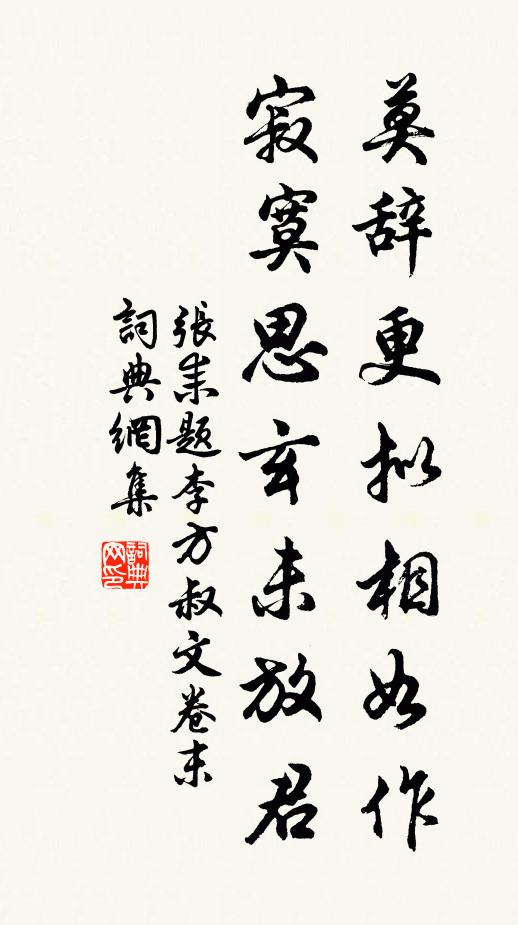 莫辞更拟相如作
寂寞思玄未放君
張耒题李方叔文卷末
詞典網集
詞典网印